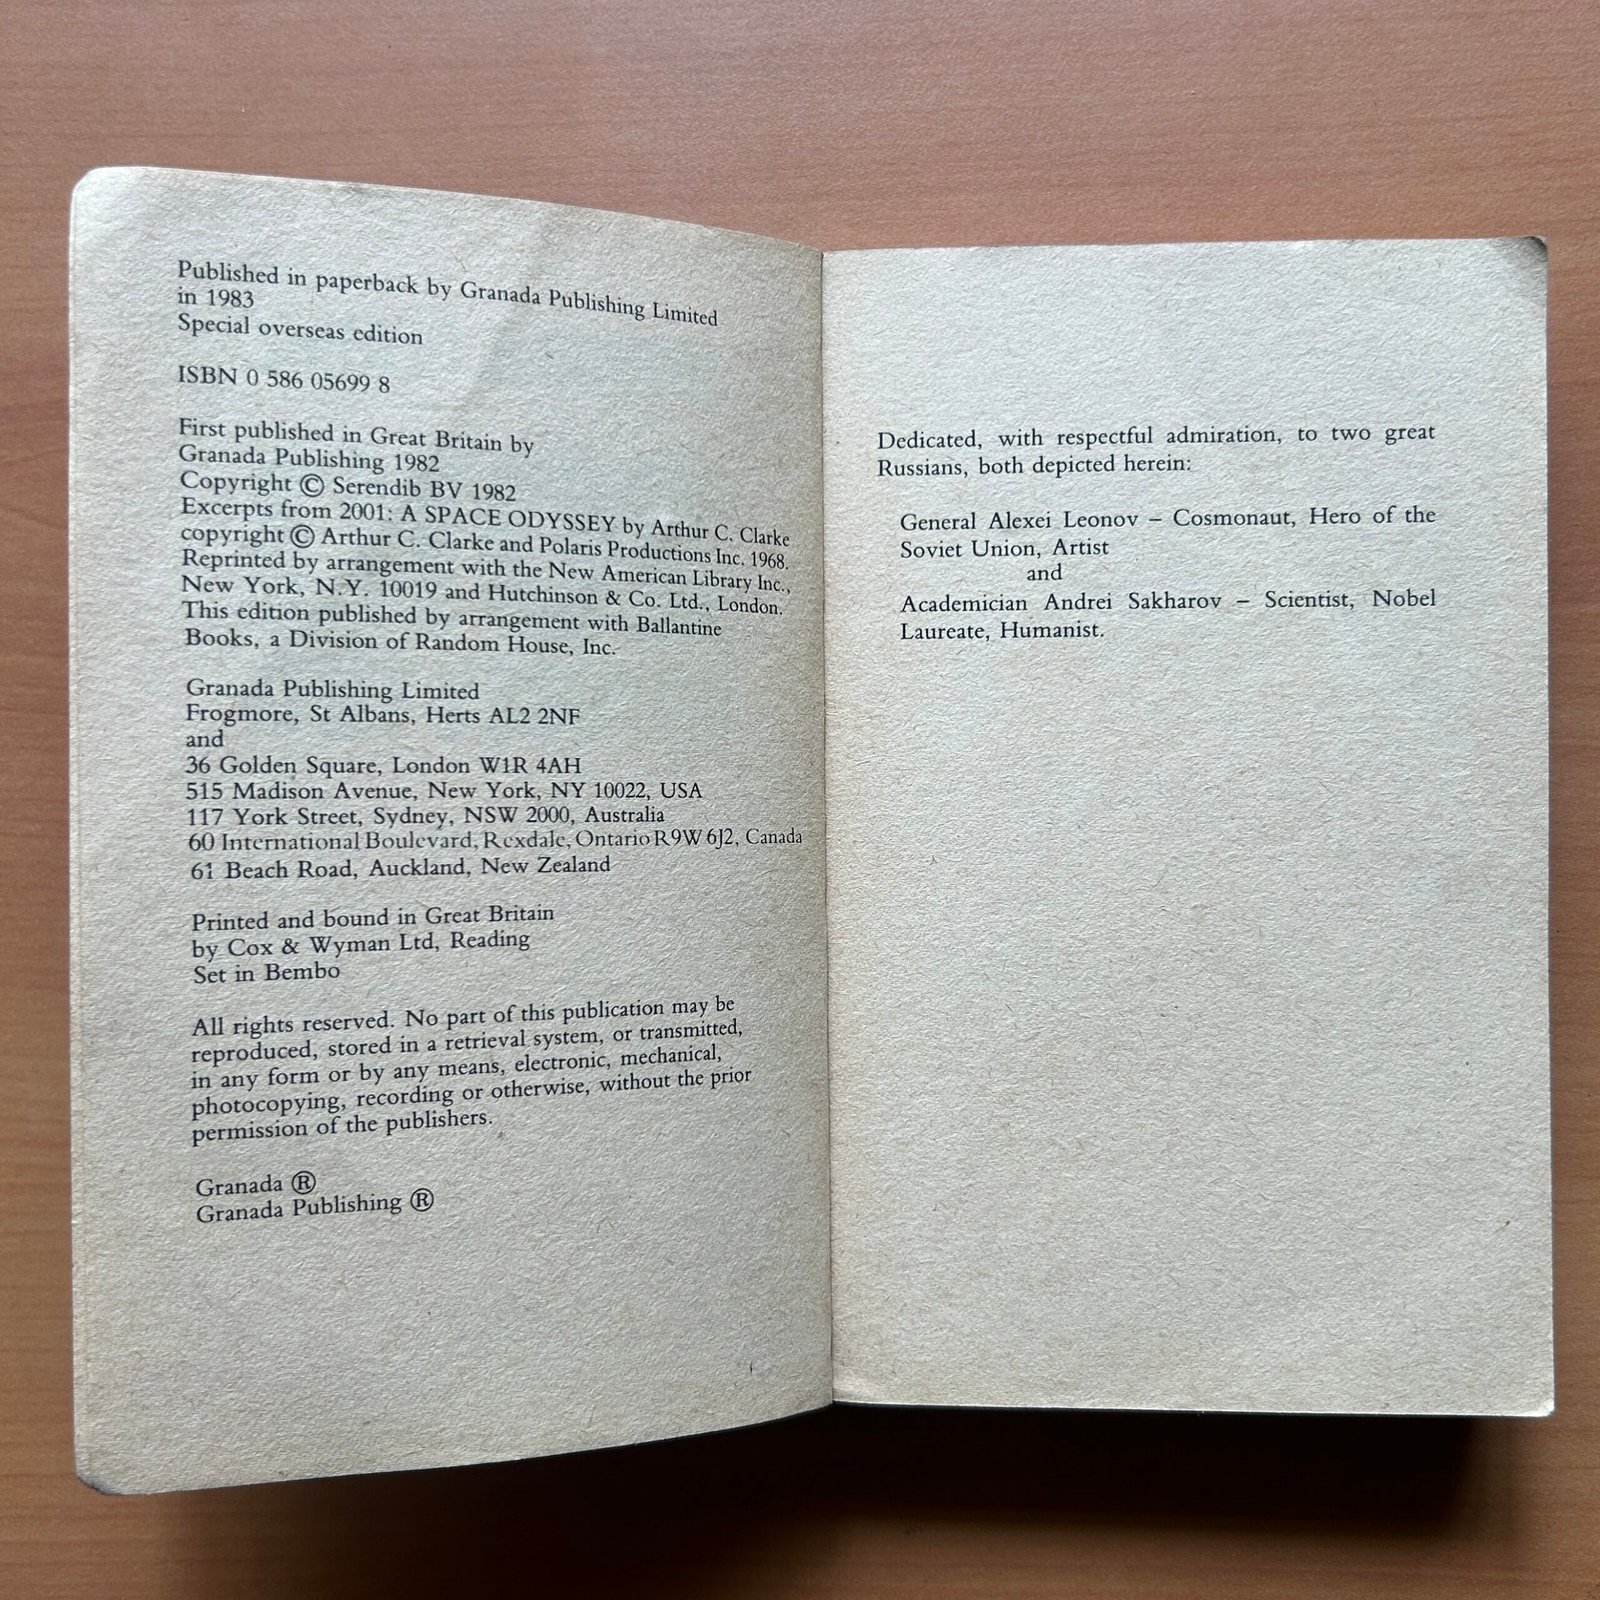 Published in paperback by Granada Publishing Limited
in 1983
Special overseas edition
ISBN 0 586 05699 8
First published in Great Britain by
Granada Publishing 1982
Copyright © Serendib BV 1982
Excerpts from 2001: A SPACE ODYSSEY by Arthur C. Clarke
copyright © Arthur C. Clarke and Polaris Productions Inc. 1968.
Reprinted by arrangement with the New American Library Inc.,
New York, N.Y. 10019 and Hutchinson & Co. Ltd., London.
This edition published by arrangement with Ballantine
Books, a Division of Random House, Inc.
Granada Publishing Limited
Frogmore, St Albans, Herts AL2 2NF
and
36 Golden Square, London W1R 4AH
515 Madison Avenue, New York, NY 10022, USA
117 York Street, Sydney, NSW 2000, Australia
60 International Boulevard, Rexdale, Ontario R9W 6J2, Canada
61 Beach Road, Auckland, New Zealand
Printed and bound in Great Britain
by Cox & Wyman Ltd, Reading
Set in Bembo
All rights reserved. No part of this publication may be
reproduced, stored in a retrieval system, or transmitted,
in any form or by any means, electronic, mechanical,
photocopying, recording or otherwise, without the prior
permission of the publishers.
Granada ®
Granada Publishing ®
Dedicated, with respectful admiration, to two great
Russians, both depicted herein:
General Alexei Leonov – Cosmonaut, Hero of the
Soviet Union, Artist
and
Academician Andrei Sakharov – Scientist, Nobel
Laureate, Humanist.